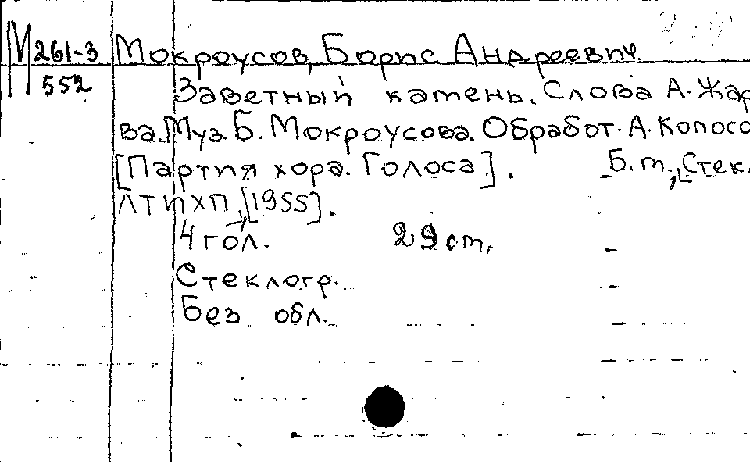 М 261-3 Мокроусов, Борис Андреевич.
552 Заветный камень. Слова А. Жаро
ва. Муз. Б. Мокроусова. Обработ. А. Копосо
[Партия хора. Голоса]. Б.м., Стек.
ЛТПХП, [1955].
4 гол. 29 см.
Стеклогр.
Без обл.